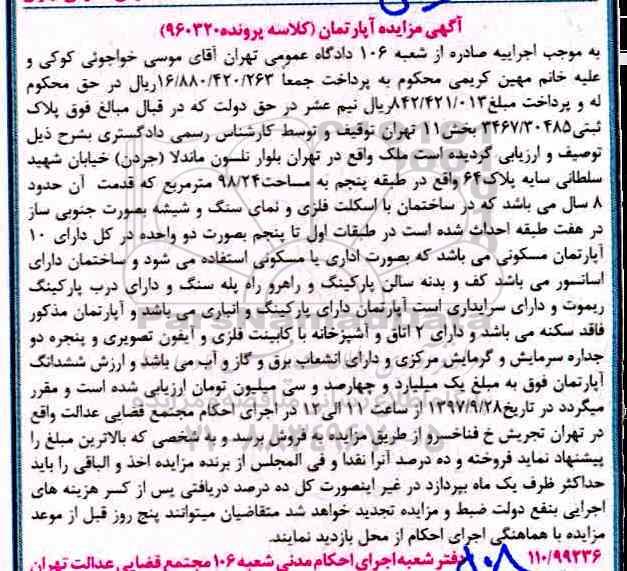 آگهی مزایده آپارتمان (کلاسه پرونده۹۶۰۳۲۰)
به موجب اجراییه صادره از شعبه ۱۰۶ دادگاه عمومی تهران آقای موسی خواجوئی کوکی و
علیه خانم مهین کریمی محکوم به پرداخت جمعاً ۱۶/۸۸۰/۴۲۰/۲۶۳ریال در حق محکوم
له و پرداخت مبلغ۸۴۲/۴۲۱/۰۱۳ریال نیم عشر در حق دولت که در قبال مبالغ فوق پلاک
ثبتی۳۴۶۷/۳۰۴۸۵ بخش۱۱ تهران توقیف و توسط کارشناس رسمی دادگستری بشرح ذیل
توصیف و ارزیابی گردیده است ملک واقع در تهران بلوار نلسون ماندلا (جردن) خیابان شهید
سلطانی سایه پلاک۶۴ واقع در طبقه پنجم به مساحت۹۸/۲۴ مترمربع که قدمت آن حدود
۸ سال می باشد که در ساختمان با اسکلت فلزی و نمای سنگ و شیشه بصورت جنوبی ساز
در هفت طبقه احداث شده است در طبقات اول تا پنجم بصورت دو واحده در کل دارای ۱۰
آپارتمان مسکونی می باشد که بصورت اداری یا مسکونی استفاده می شود و ساختمان دارای
اسانسور می باشد کف و بدنه سالن پارکینگ و راهرو راه پله سنگ و دارای درب پارکینگ
ریموت و دارای سرایداری است آپارتمان دارای پارکینگ و انباری می باشد و آپارتمان مذکور
فاقد سکنه می باشد و دارای ۲ اتاق و آشپزخانه با کابینت فلزی و آیفون تصویری و پنجره دو
جداره سرمایش و گرمایش مرکزی و دارای انشعاب برق و گاز و آب می باشد و ارزش ششدانگ
آپارتمان فوق به مبلغ یک میلیارد و چهارصد و سی میلیون تومان ارزیابی شده است و مقرر
میگردد در تاریخ۱۳۹۷/۹/۲۸ از ساعت ۱۱ الی۱۲ در اجرای احکام مجتمع قضایی عدالت واقع
در تهران تجریش خ فناخسرو از طریق مزایده به فروش برسد و به شخصی که بالاترین مبلغ را
پیشنهاد نماید فروخته و ده درصد آنرا نقدا و فی المجلس از برنده مزایده اخذ و الباقی را باید
حداکثر ظرف یک ماه بپردازد در غیر اینصورت کل ده درصد دریافتی پس از کسر هزینه های
اجرایی بنفع دولت ضبط و مزایده تجدید خواهد شد متقاضیان میتوانند پنج روز قبل از موعد
مزایده با هماهنگی اجرای احکام از محل بازدید نمایند.
۱۱۰/۹۹۲۳۶ دفتر شعبه اجرای احکام مدنی شعبه ۱۰۶ مجتمع قضایی عدالت تهران